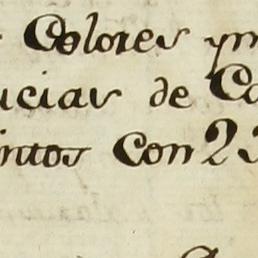 Colores
ucias de Ca
intos Con 23